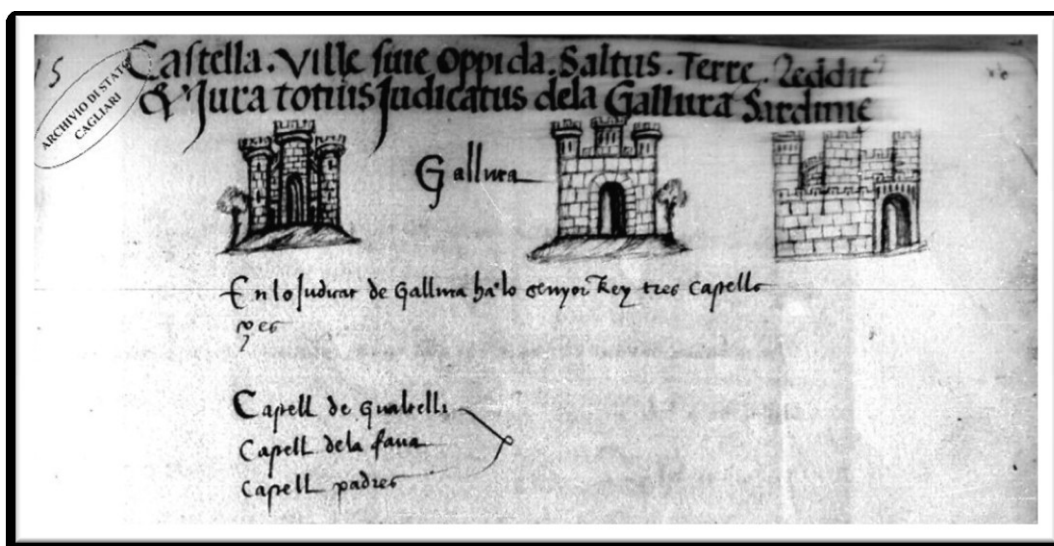 15
ARCHIVIO DI STATO
CAGLIARI
Castella. Ville siue oppida. Saltus. Terre. Reddit9
& Jura totius Judicatus dela Gallura Sardinie
Gallura
En lo Judicat de Gallura ha lo senyor Rey tres Castells
ço es
Castell de Gualtelli
Castell dela faua
Castell padres